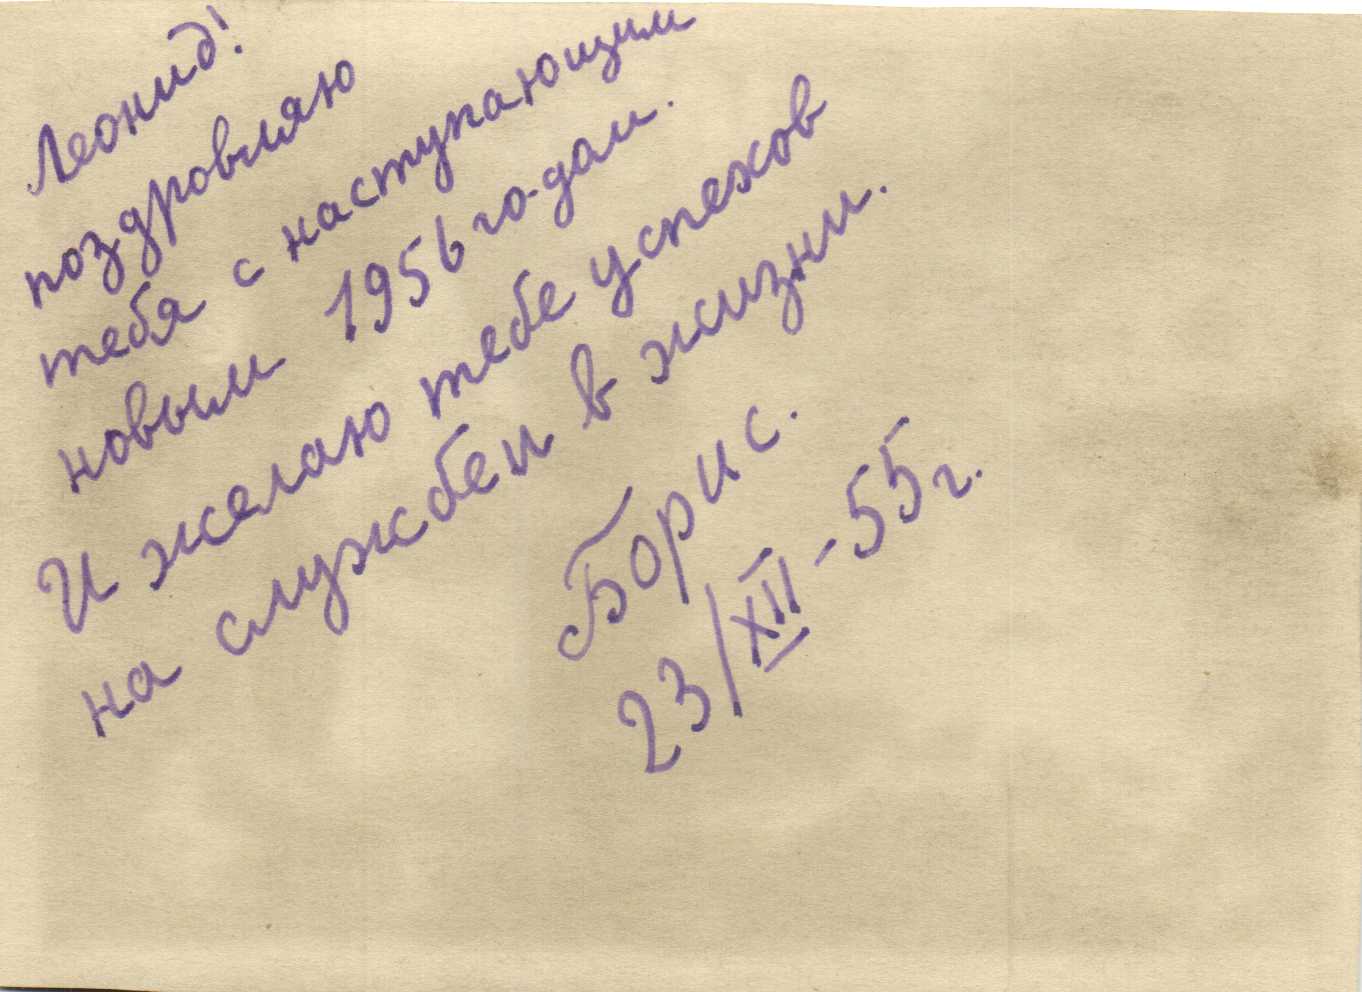 Леонид!
поздровляю
тебя с наступающим
новым 1956 го-дом.
И желаю тебе успехов
на службе и в жизни.
Борис.
23/XII-55г.